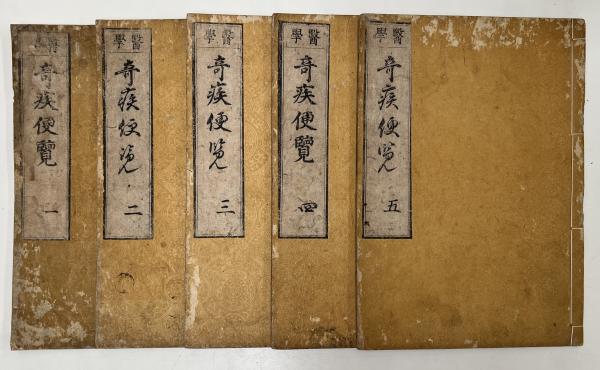 奇疾便覽 一
醫學
奇疾便覽 二
醫學
奇疾便覽 三
醫學
奇疾便覽 四
醫學
奇疾便覽 五